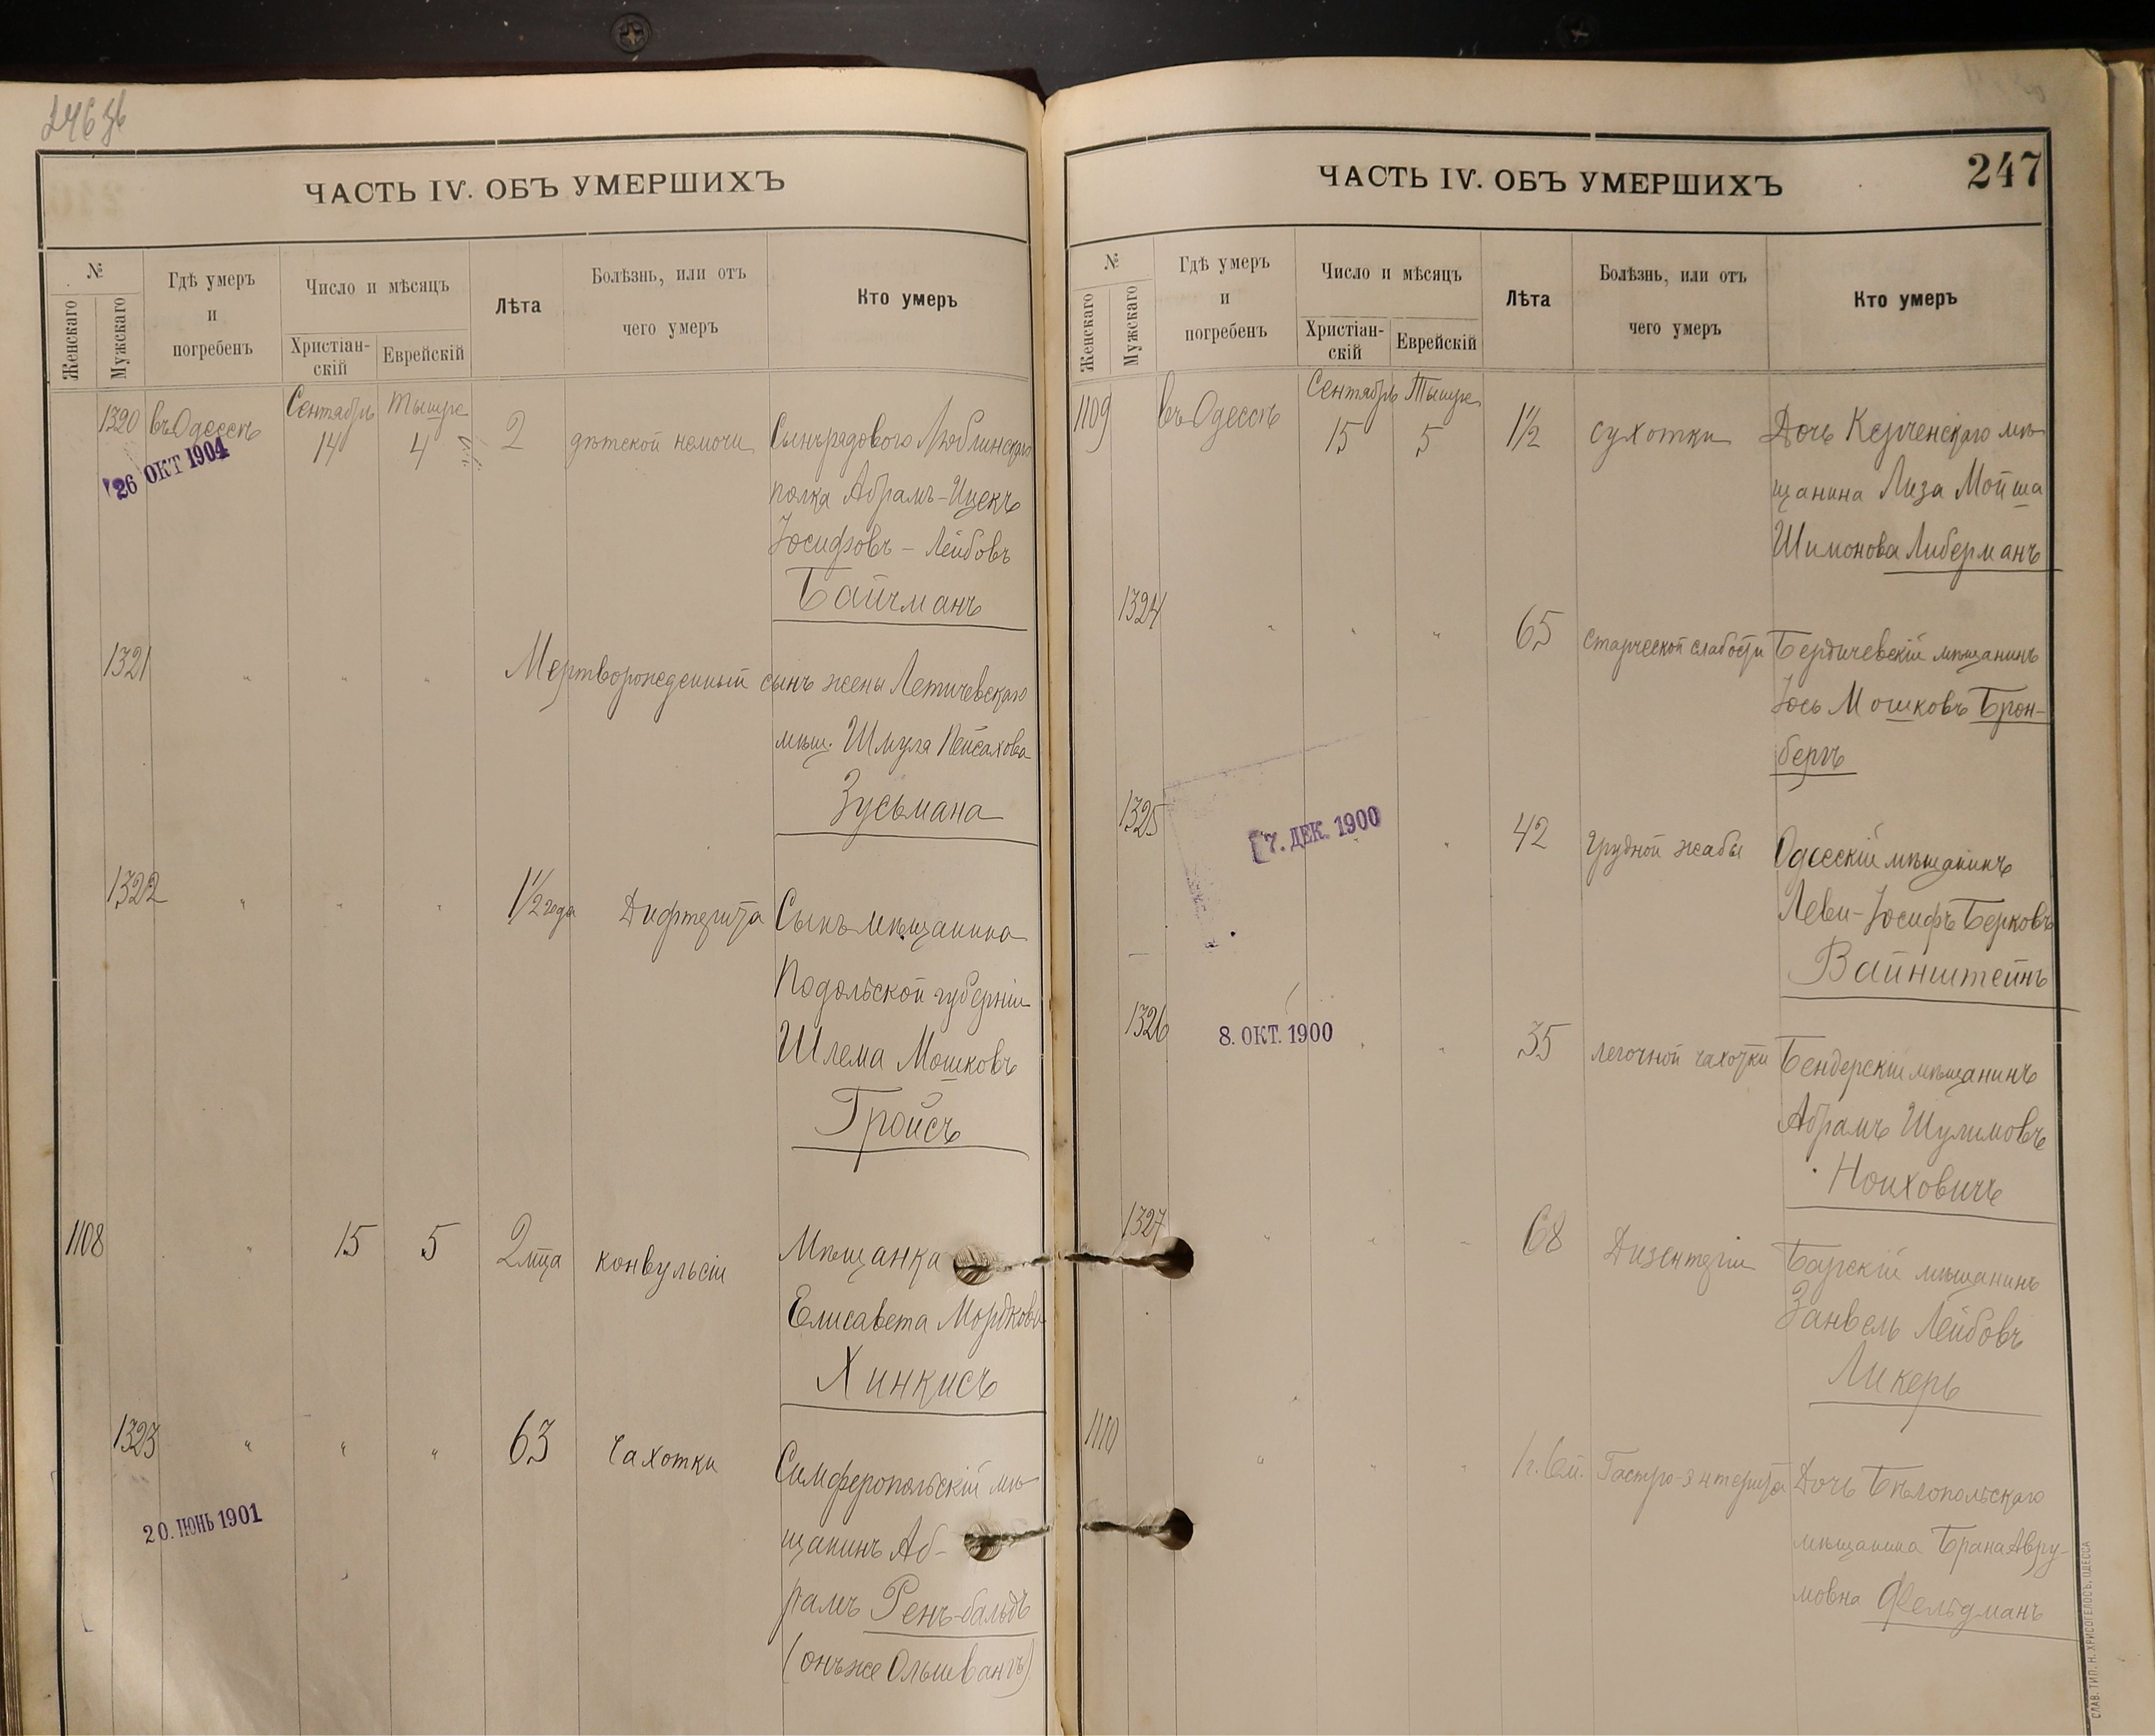 246 об
ЧАСТЬ IV. ОБЪ УМЕРШИХЪ
№
Женскаго
Мужскаго
Гдѣ умеръ
и
погребенъ
Число и мѣсяцъ
Христіан-
скій
Еврейскій
Лѣта
Болѣзнь, или отъ
чего умеръ
Кто умеръ
1320 въ Одессѣ Сентябрь Тышре
14 4 2 дѣтской немочи Сынъ рядового Люблинскаго
26 ОКТ 1904
полка Абрамъ-Ицекъ
Іосифовъ-Лейбовъ
Байчманъ
1321 " " " Мертворожденный сынъ жены Летичевскаго
мѣщ. Шмуля Пейсахова
Зусьмана
1322 " " " 1 1/2 года Дифтерита Сынъ мѣщанина
Подольской губерніи
Шлема Мошковъ
Гройсъ
1108 " 15 5 2 мца конвульсіи Мѣщанка
Елисавета Мордкова
Хинкисъ
1323 " " " 63 Чахотки Симферопольскій мѣ-
20. ІЮНЬ 1901
щанинъ Аб-
рамъ Ренъ-бальдъ
(онъ же Ольшвангъ)
ЧАСТЬ IV. ОБЪ УМЕРШИХЪ
247
№
Женскаго
Мужскаго
Гдѣ умеръ
и
погребенъ
Число и мѣсяцъ
Христіан-
скій
Еврейскій
Лѣта
Болѣзнь, или отъ
чего умеръ
Кто умеръ
1109 въ Одессѣ Сентябрь Тышре
15 5 1 1/2 сухотки Дочь Керченскаго мѣ-
щанина Лиза Мойша
Шимонова Либерманъ
1324 " " " 65 старческой слабости Бердичевскій мѣщанинъ
Іось Мошковъ Брон-
бергъ
1325 7. ДЕК. 1900 " 42 грудной жабы Одесскій мѣщанинъ
Леви-Іосифъ Берковъ
Вайнштейнъ
1326 8. ОКТ. 1900 " " 35 легочной чахотки Бендерскій мѣщанинъ
Абрамъ Шулимовъ
Ноиховичъ
1327 " " " 68 Дизентеріи Барскій мѣщанинъ
Занвель Лейбовъ
Ликеръ
1110 " " " 1 г. 6 м. Гастро-энтерита Дочь Бѣлопольскаго
мѣщанина Брана Авру-
мовна Фельдманъ
СЛАВ. ТИП. Н. ХРИСОГЕЛОСЪ, ОДЕССА